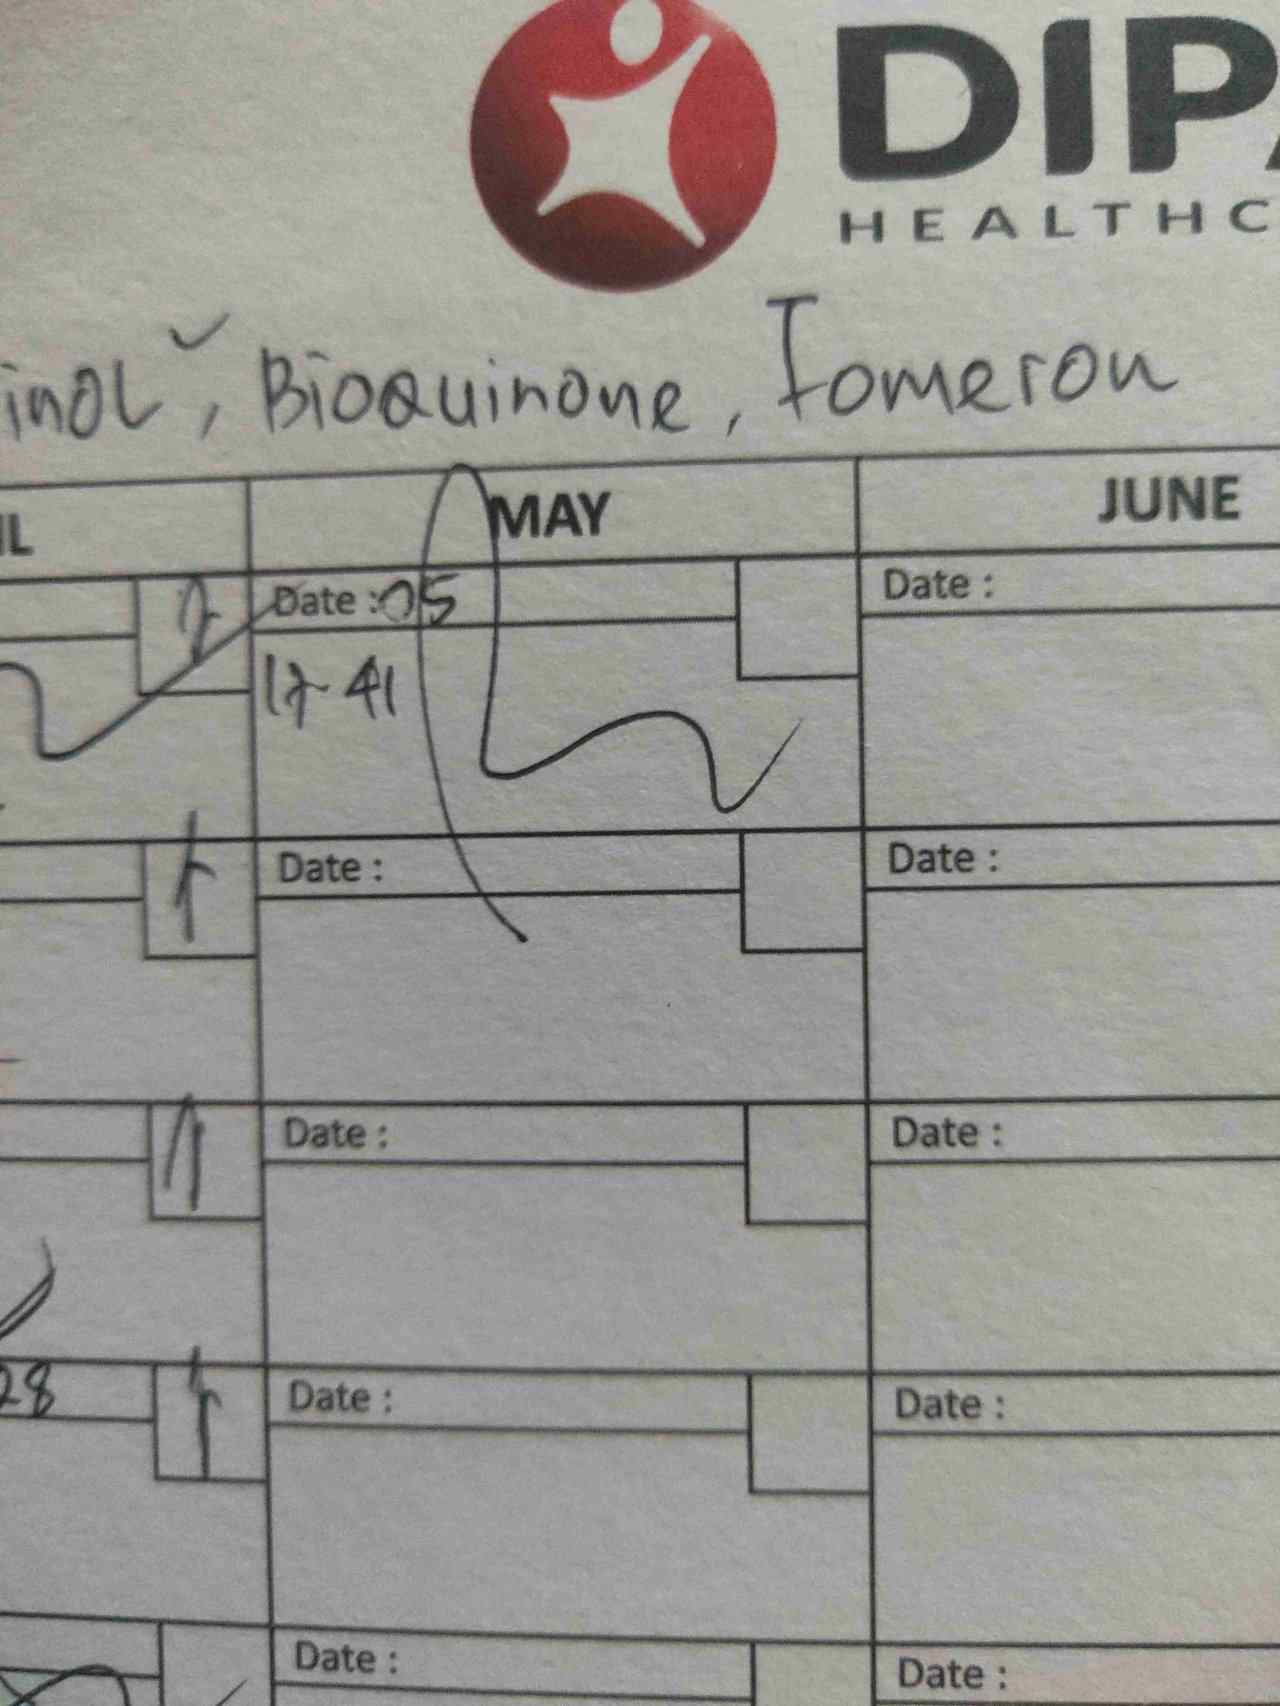 DIP
HEALTHC
inol, Bioquinone, Fomeron
IL MAY JUNE
Date : 05 Date :
17-41
Date : Date :
Date : Date :
28 Date : Date :
Date : Date :